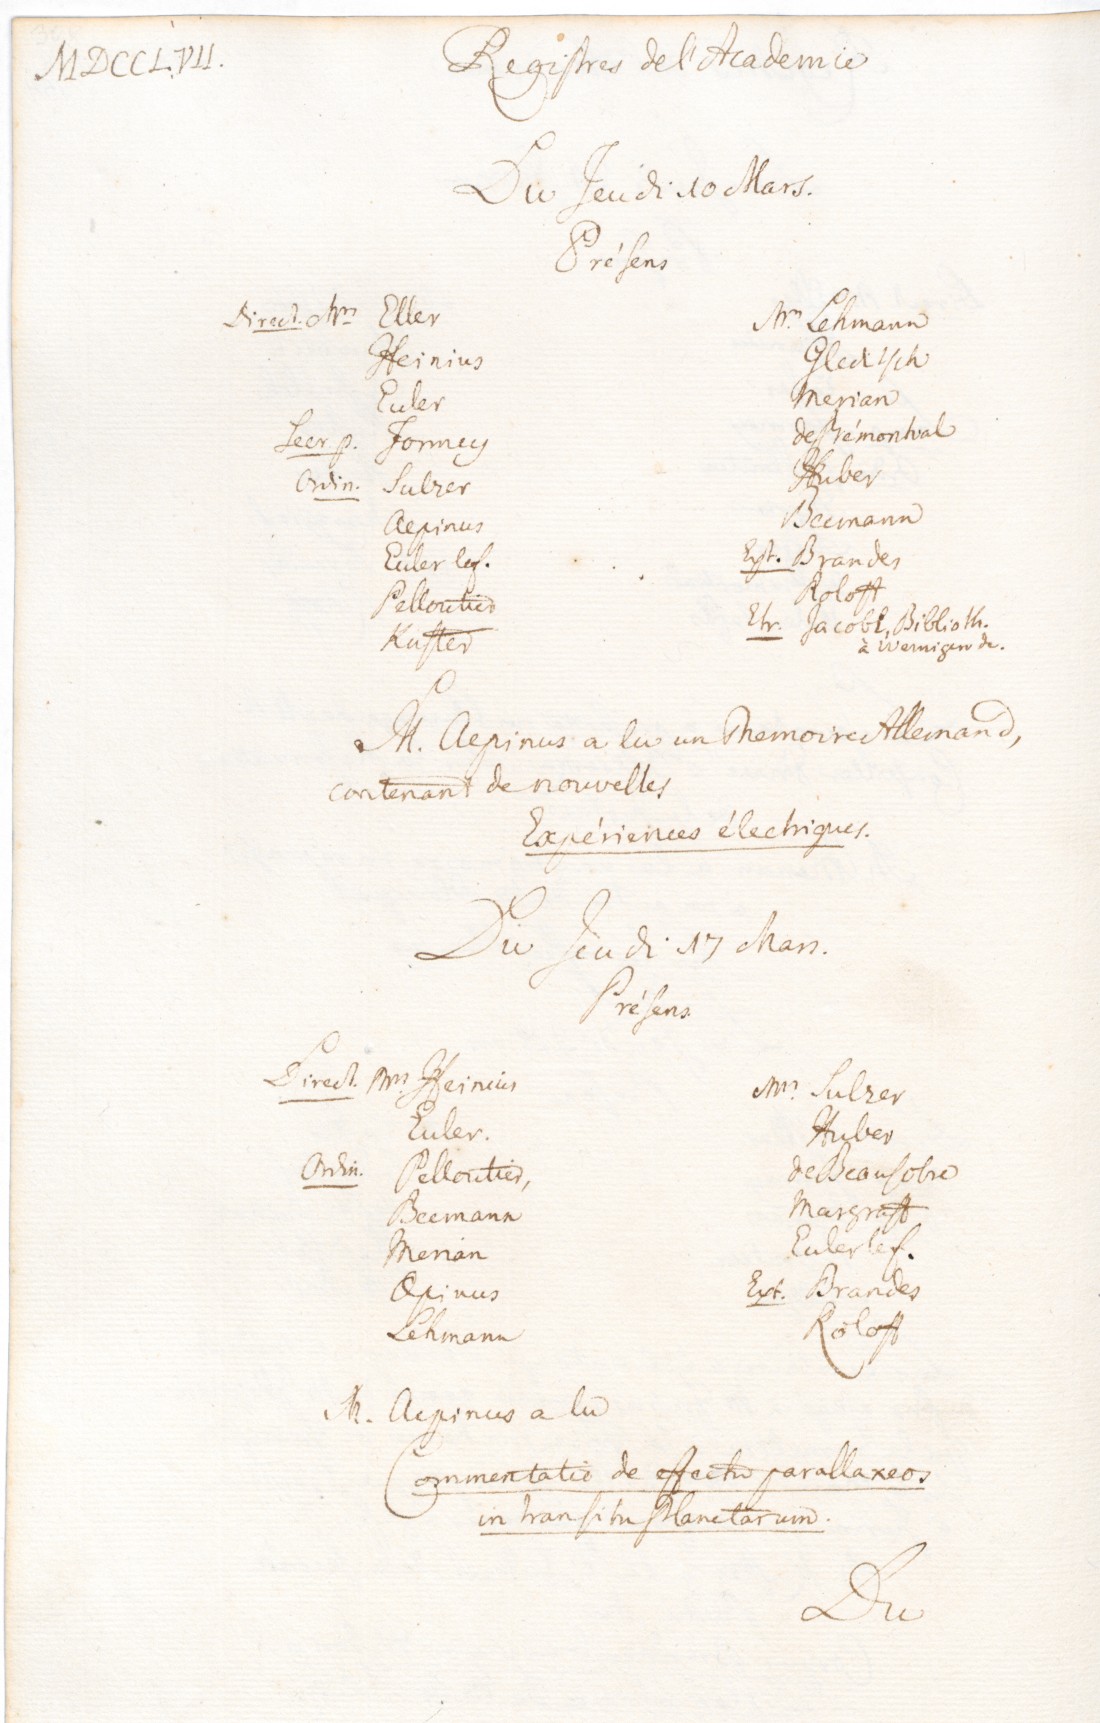 MDCCLVII.
Registres de l'Academie
Du Jeudi 10 Mars.
Présens
Direct. Mrs Eller
Heinius
Euler
Secr. p. Formey
Ordin. Sulzer
Aepinus
Euler le f.
Pelloutier
Kuster
Mrs Lehmann
Gleditsch
Merian
de Prémontval
Huber
Becmann
Ext. Brandes
Roloff
Etr. Jacobi, Biblioth.
à Wernigerode.
M. Aepinus a lu un Memoire Allemand,
contenant de nouvelles
Expériences électriques.
Du Jeudi 17 Mars.
Présens
Direct. Mrs Heinius
Euler.
Ordin. Pelloutier,
Becmann
Merian
Æpinus
Lehmann
Mrs Sulzer
Huber
de Beausobre
Margraff
Euler le f.
Ext. Brandes
Roloff
M. Aepinus a lu
Commentatio de effectu parallaxeos
in transitu Planetarum.
Du